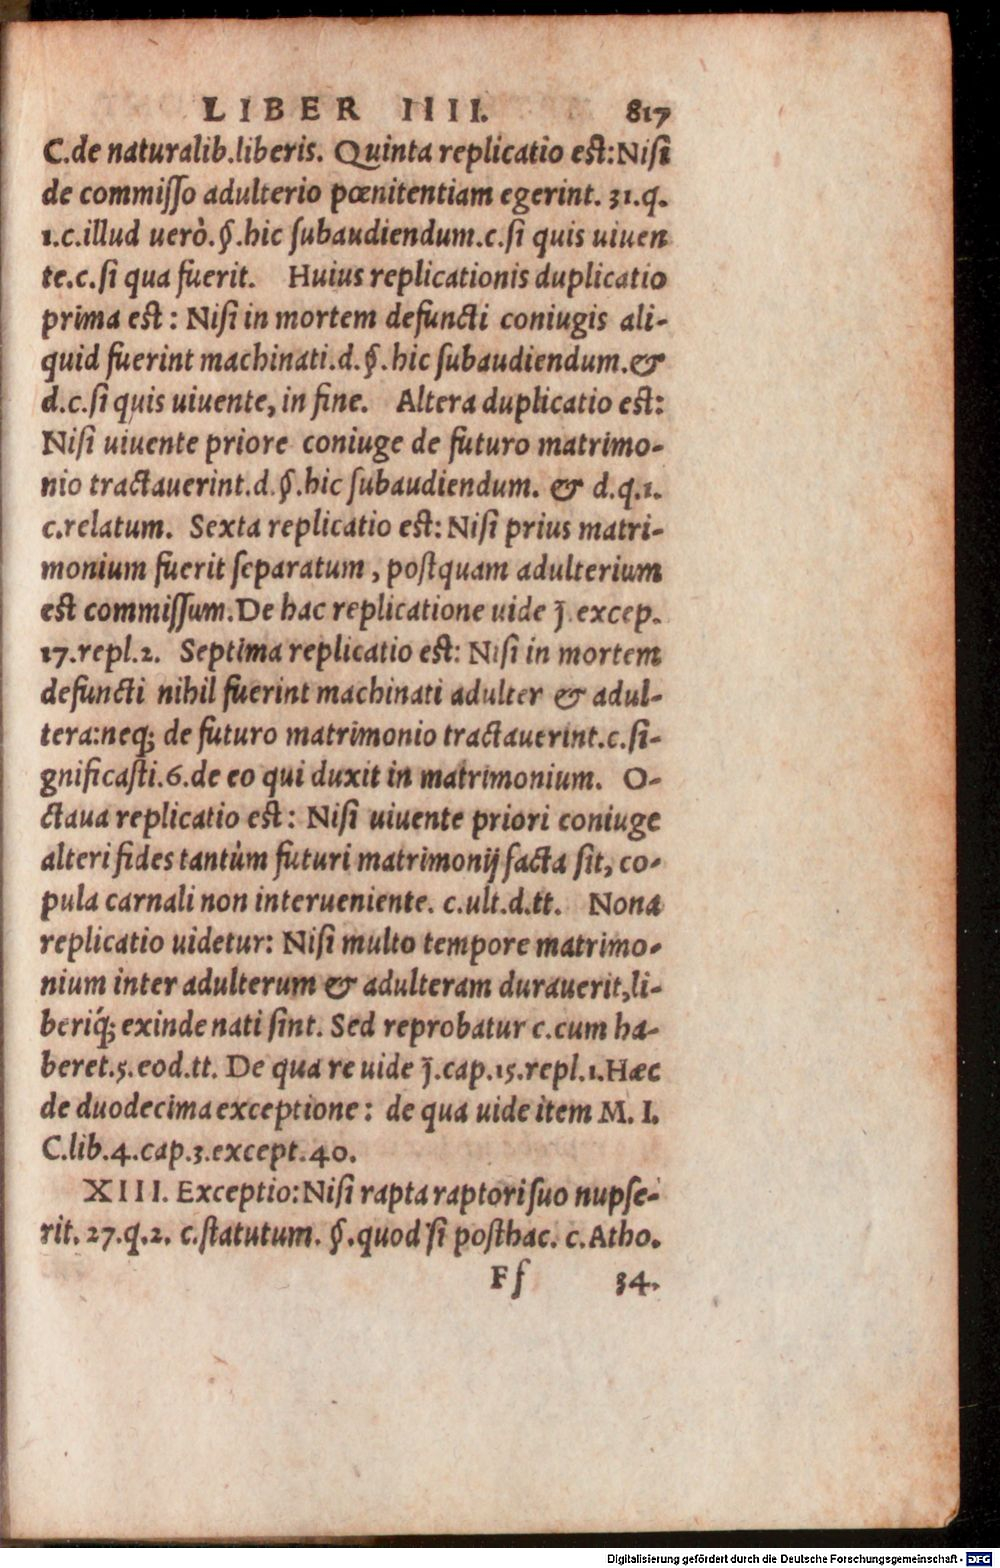 LIBER IIII. 817
C.de naturalib.liberis. Quinta replicatio est:Nisi
de commisso adulterio pœnitentiam egerint. 31.q.
1.c.illud uerò.§.hic subaudiendum.c.si quis uiuen
te.c.si qua fuerit. Huius replicationis duplicatio
prima est: Nisi in mortem defuncti coniugis ali-
quid fuerint machinati.d.§.hic subaudiendum.&
d.c.si quis uiuente, in fine. Altera duplicatio est:
Nisi uiuente priore coniuge de futuro matrimo-
nio tractauerint.d.§.hic subaudiendum. & d.q.1.
c.relatum. Sexta replicatio est: Nisi prius matri-
monium fuerit separatum, postquam adulterium
est commissum.De hac replicatione uide j̄ excep.
17.repl.2. Septima replicatio est: Nisi in mortem
defuncti nihil fuerint machinati adulter & adul-
tera:neq; de futuro matrimonio tractauerint.c.si-
gnificasti.6.de eo qui duxit in matrimonium. O-
ctaua replicatio est: Nisi uiuente priori coniuge
alteri fides tantùm futuri matrimonij facta sit, co-
pula carnali non interueniente. c.ult.d.tt. Nona
replicatio uidetur: Nisi multo tempore matrimo-
nium inter adulterum & adulteram durauerit,li-
beriq́; exinde nati sint. Sed reprobatur c.cum ha-
beret.5.eod.tt. De qua re uide j̄.cap.15.repl.1.Hæc
de duodecima exceptione: de qua uide item M. I.
C.lib.4.cap.3.except.40.
XIII. Exceptio:Nisi rapta raptori suo nupse-
rit. 27.q.2. c.statutum. §.quod si posthac. c.Atho.
Ff 34.
Digitalisierung gefördert durch die Deutsche Forschungsgemeinschaft - DFG